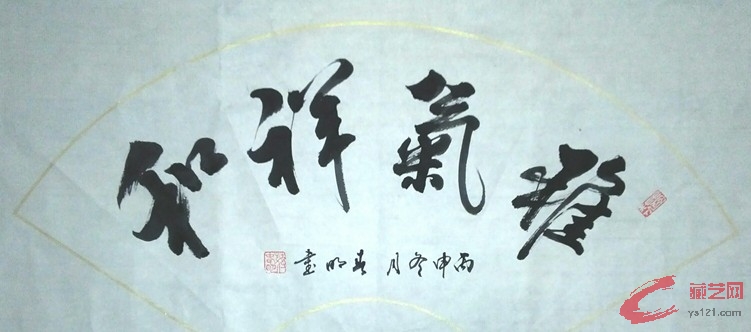 氣祥和
丙申冬月春明書
藏艺网
ys121.com